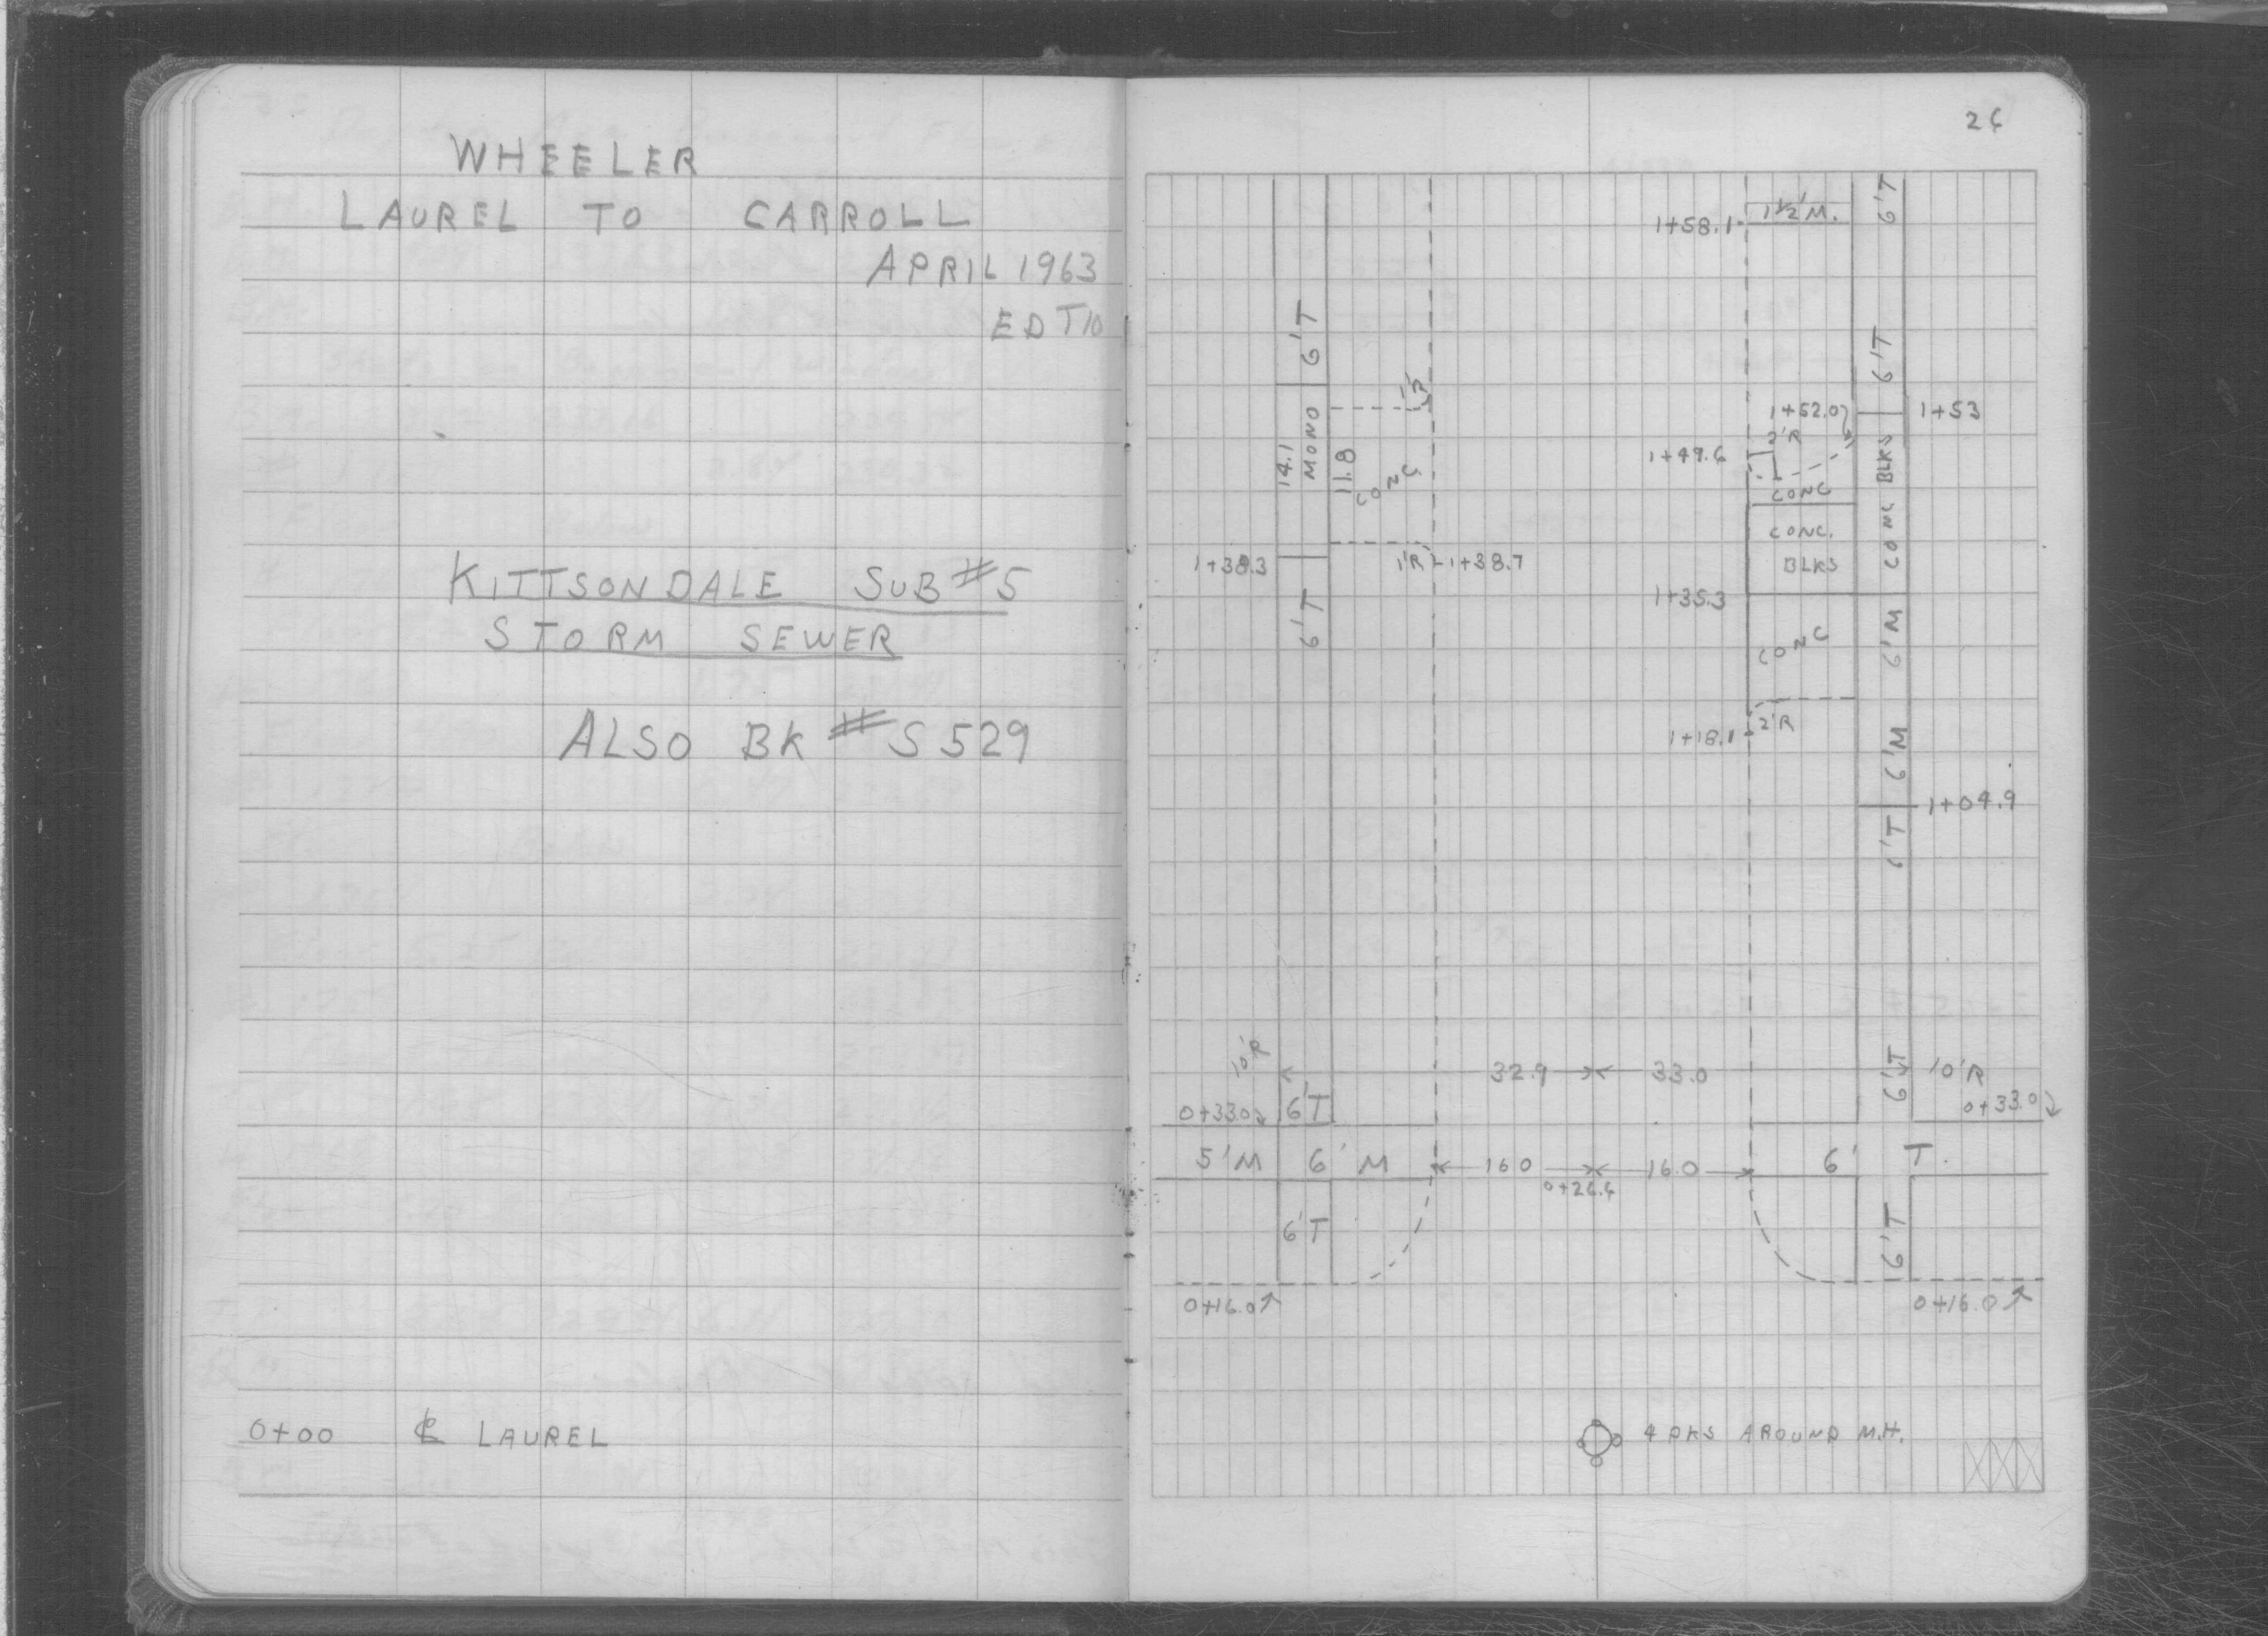 WHEELER
LAUREL TO CARROLL
APRIL 1963
KITTSONDALE SUB #5
STORM SEWER
ALSO BK # S529
0+00 ℄ LAUREL
26
6'T
1+58.1 1½'M.
6'T
6'T
1'R
1+52.0 1+53
2'R
14.1 MONO 11.8 CONC
1+49.6
CONC BLKS
CONC
CONC.
BLKS
1+38.3 1'R 1+38.7
1+35.3
6'T
CONC 6'M
2'R
1+18.1
6'M
1+04.9
6'T
10'R 32.9 33.0 6'T 10'R
0+33.0 6'T 0+33.0
5'M 6'M 16.0 16.0 6' T.
0+26.4
6'T 6'T
0+16.0 0+16.0
4 PKS AROUND M.H.